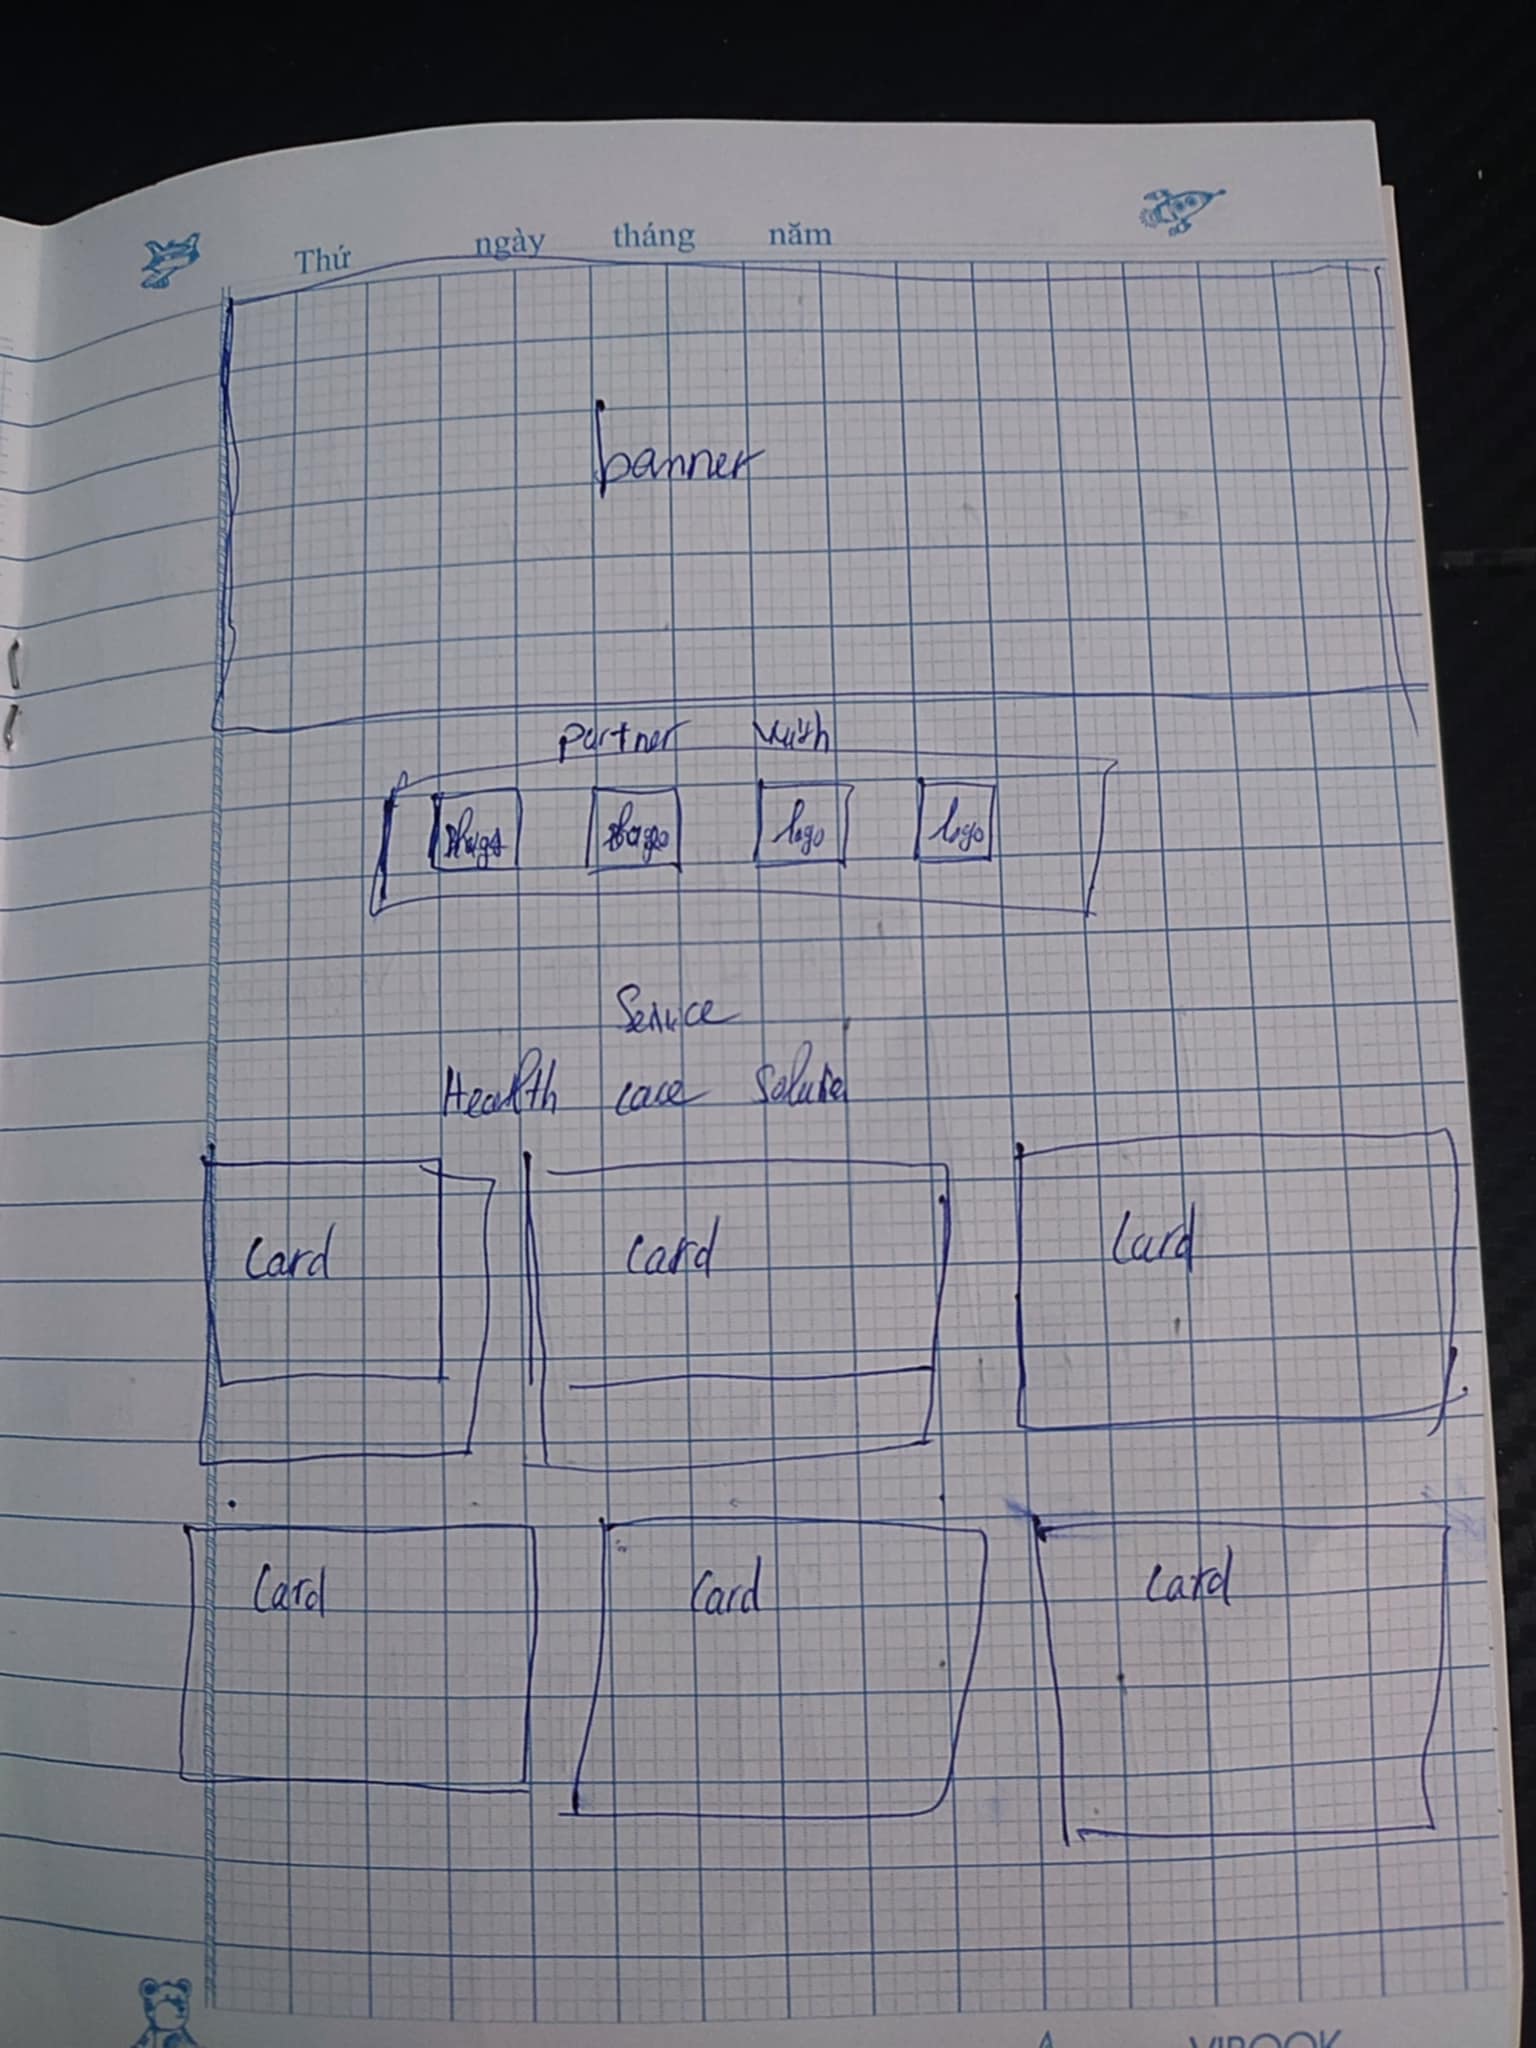 Thứ ngày tháng năm
banner
partner with
logo logo
Service
Health care
Card Card Card
Card Card Card
VIBOOK